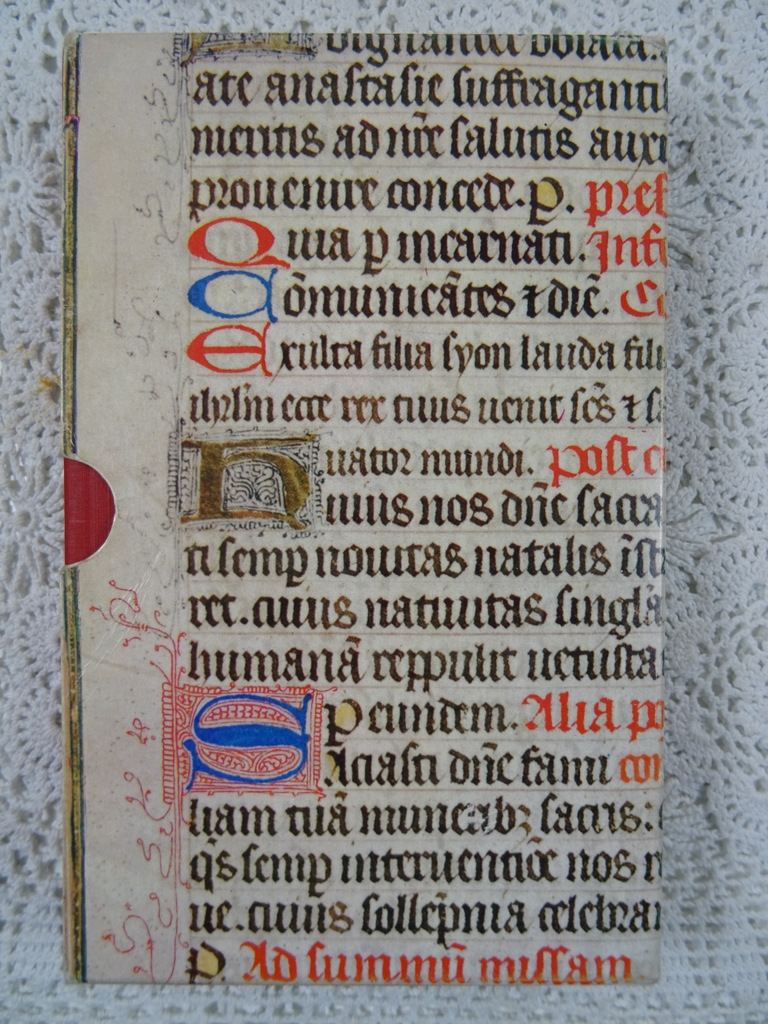 dignanter oblata.
ate anastasie suffraganti
meritis ad nr̄e salutis auxi
prouenire concede. p. pref
Quia p incarnati. Inf
Cōmunicātes ⁊ diē. Co
Exulta filia syon lauda fili
ihrl̄m ecce rex tuus uenit sc̄s ⁊ sa
uator mundi. post c
Huius nos dn̄e sacra
ti semp nouitas natalis īst
ret. cuius natiuitas singla
humanā reppulit uetusta
P eundem. Alia po
Saciasti dn̄e fami
liam tuā muneribꝫ sacris:
qs̄ semp interuentiōe nos r
ue. cuius sollēpnia celebra
P. Ad summū missam